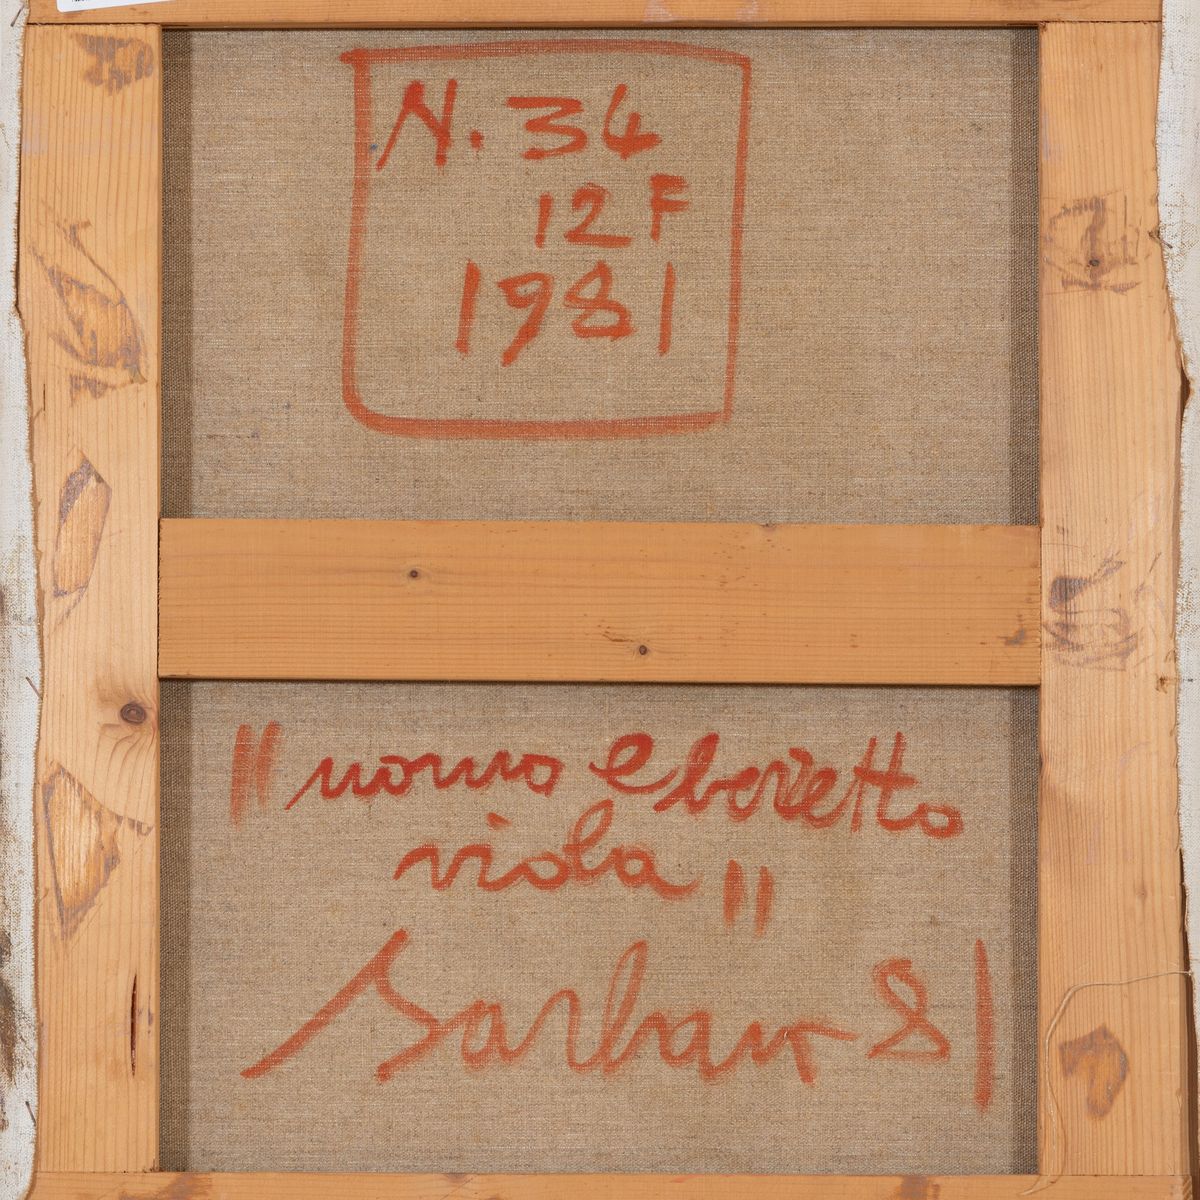 N. 34
12 F
1981
"uomo e berretto
viola"
Sarbarr 81